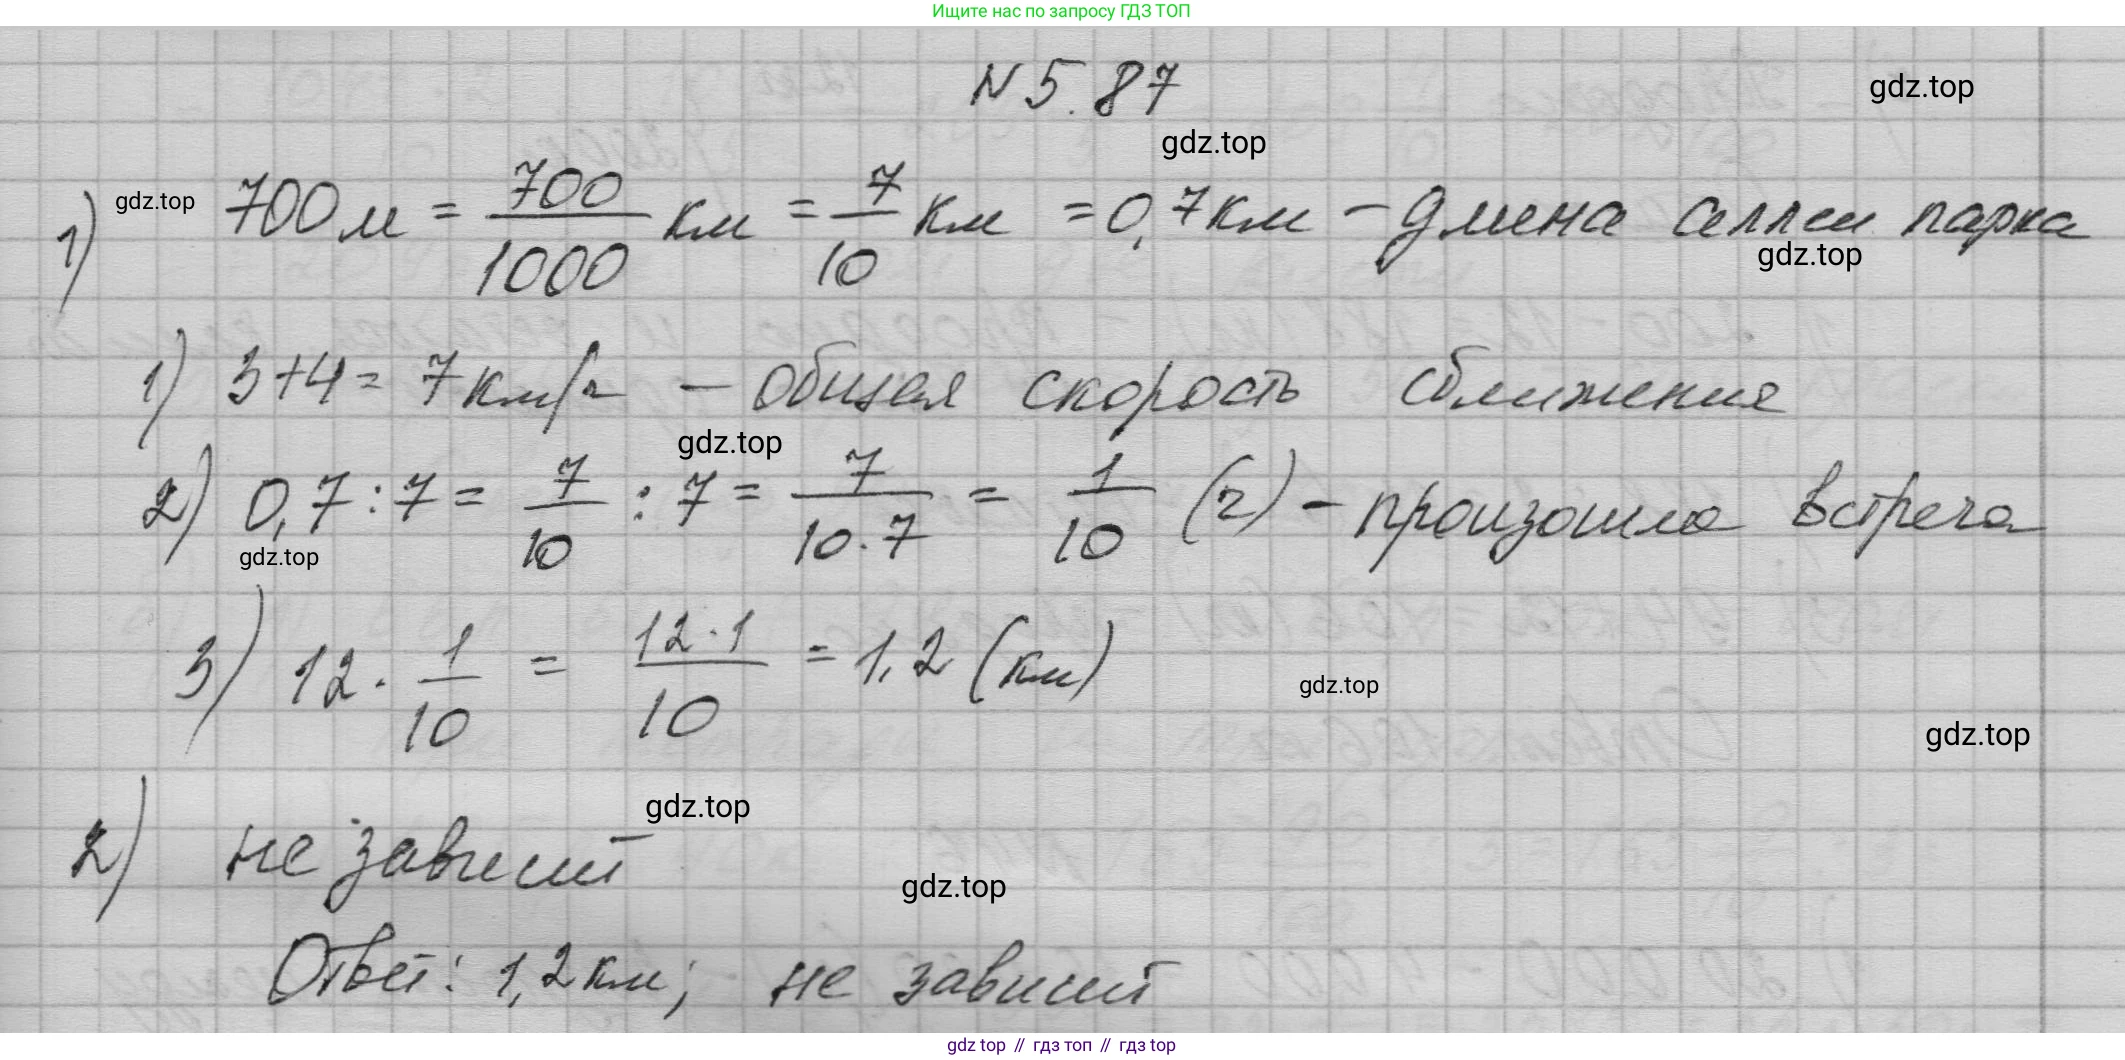 Ищите нас по запросу ГДЗ ТОП
N 5.87
gdz.top
gdz.top
1) gdz.top 700 м = 700/1000 км = 7/10 км = 0,7 км – длина аллеи парка
gdz.top
1) 3+4 = 7 км/ч – общая скорость сближения
gdz.top
2) 0,7 : 7 = 7/10 : 7 = 7/10·7 = 1/10 (ч) – произошла встреча
gdz.top
3) 12 · 1/10 = 12·1/10 = 1,2 (км)
gdz.top
gdz.top
gdz.top
2) не зависит
gdz.top
Ответ: 1,2 км; не зависит
gdz top // гдз топ // гдз top